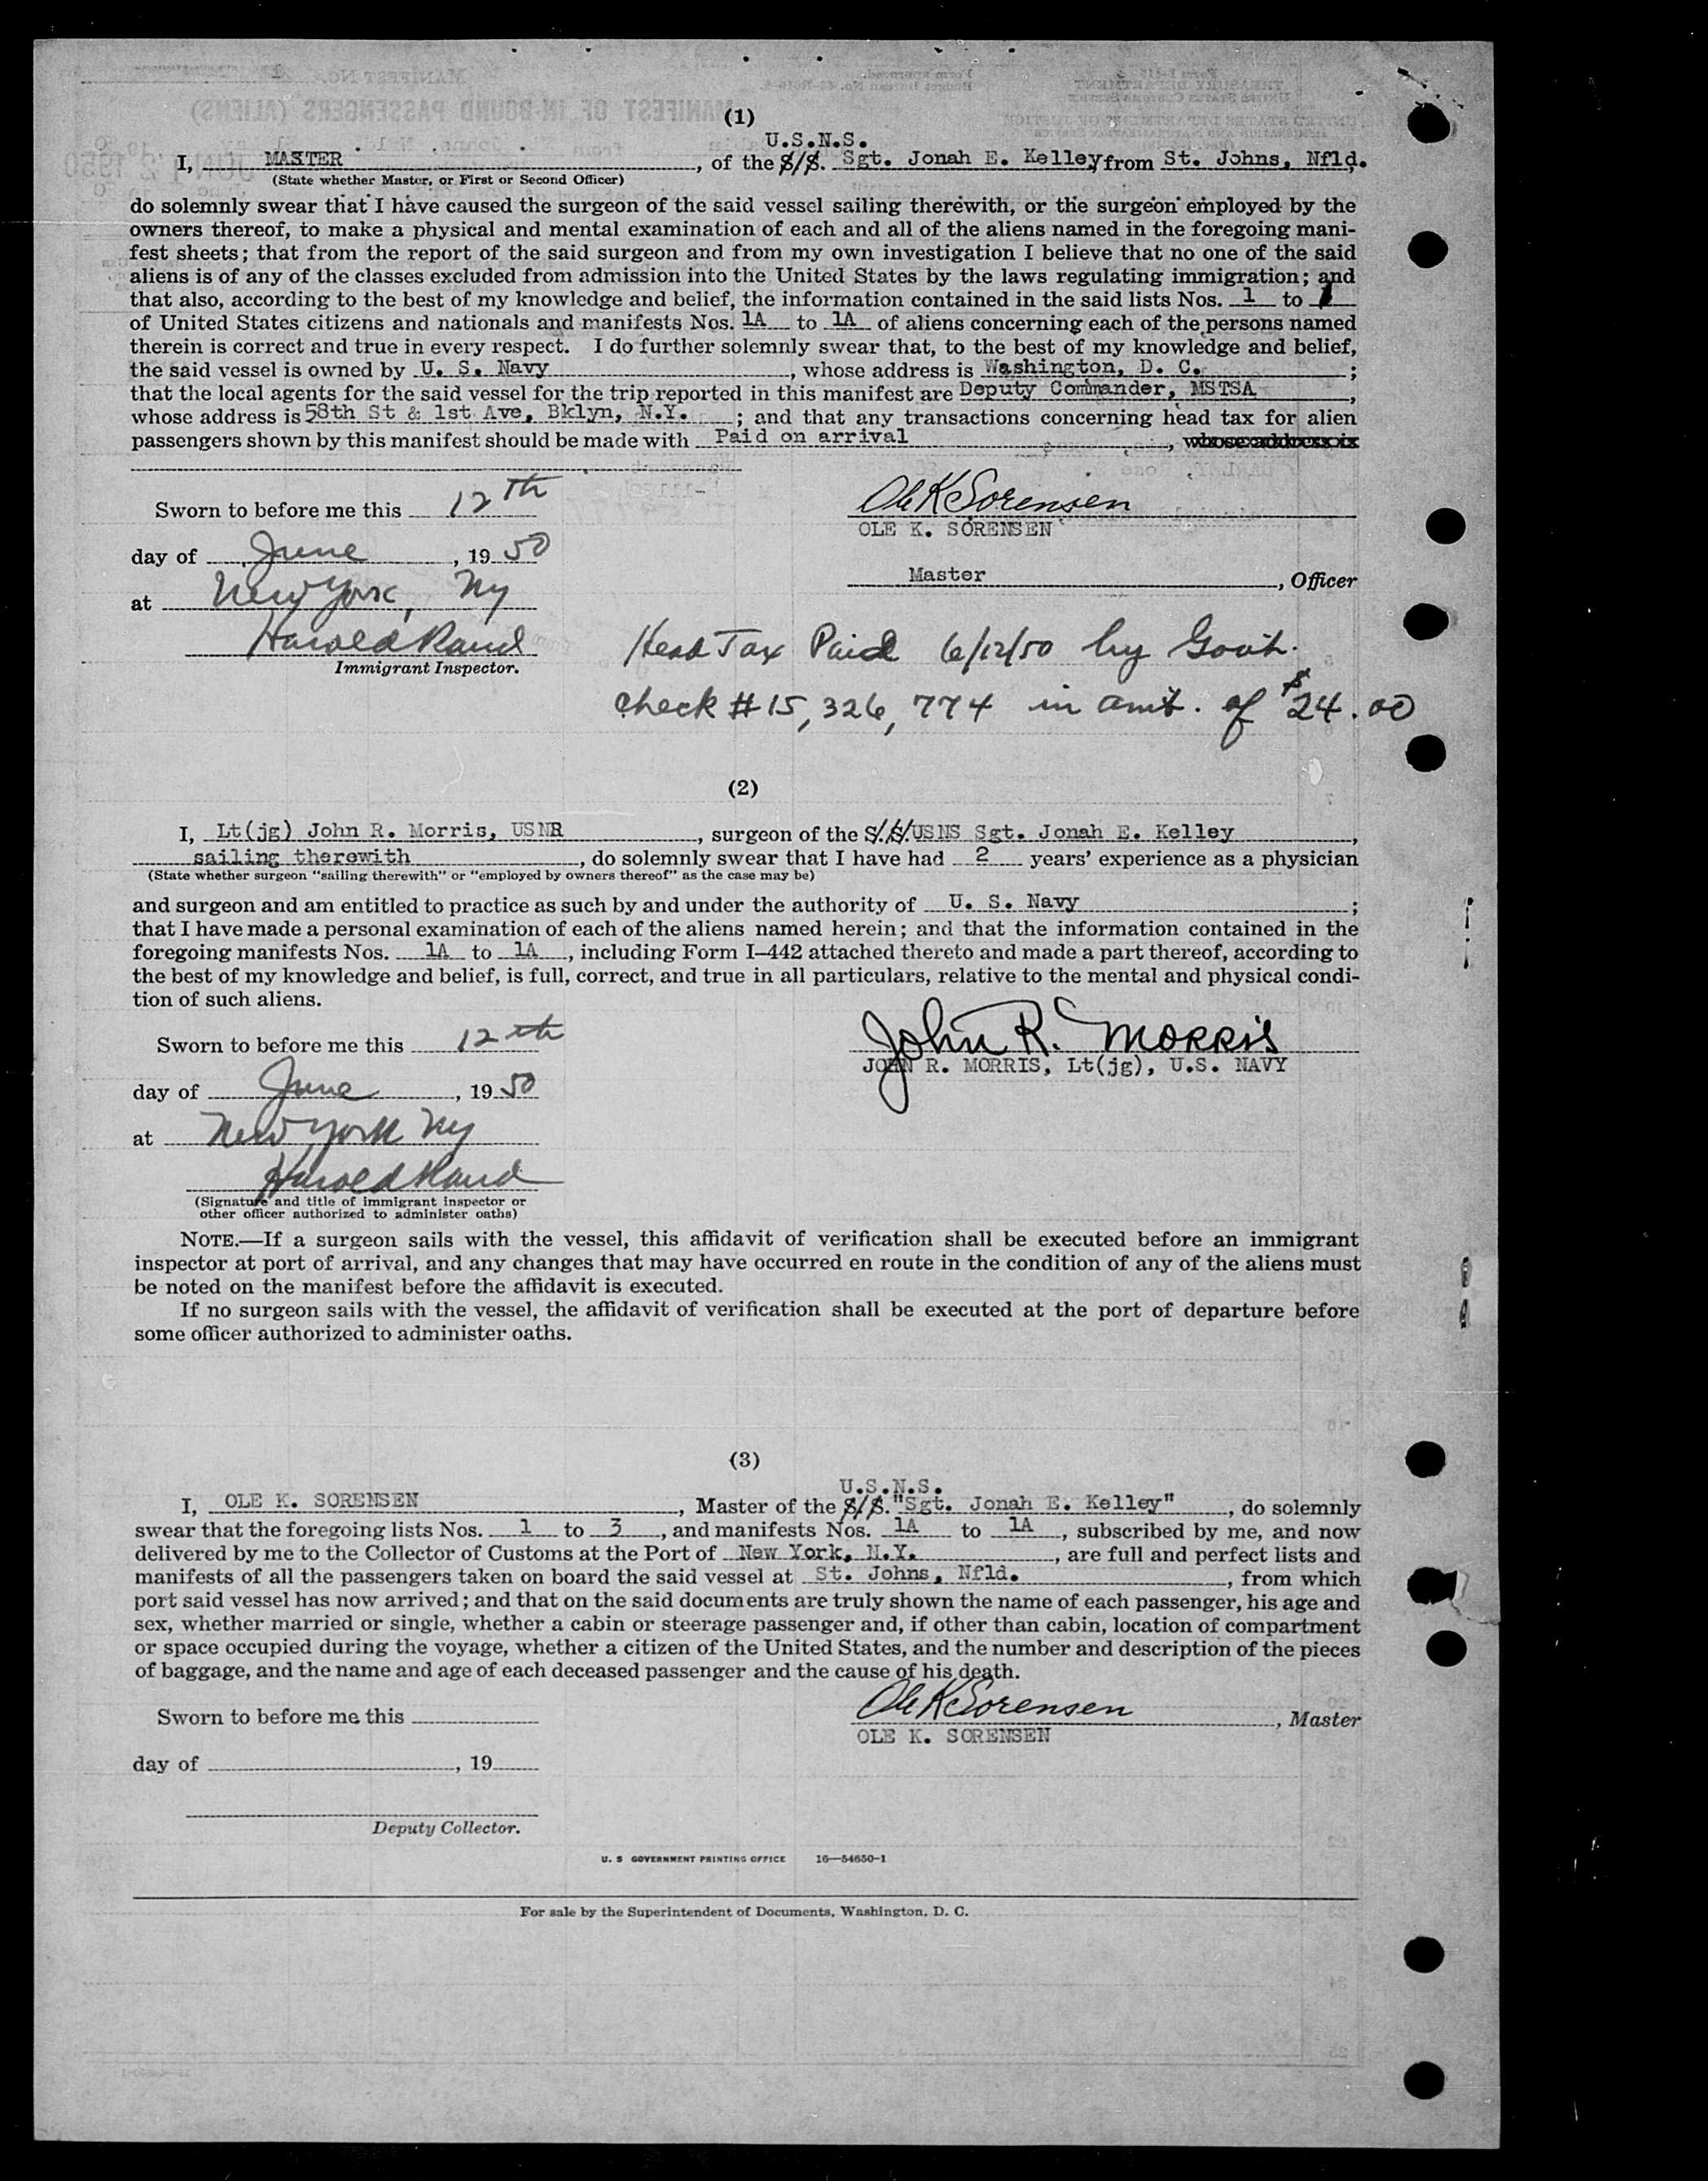 (1)
U.S.N.S.
I, MASTER, of the S/S. Sgt. Jonah E. Kelley from St. Johns, Nfld.
(State whether Master, or First or Second Officer)
do solemnly swear that I have caused the surgeon of the said vessel sailing therewith, or the surgeon employed by the
owners thereof, to make a physical and mental examination of each and all of the aliens named in the foregoing mani-
fest sheets; that from the report of the said surgeon and from my own investigation I believe that no one of the said
aliens is of any of the classes excluded from admission into the United States by the laws regulating immigration; and
that also, according to the best of my knowledge and belief, the information contained in the said lists Nos. 1 to
of United States citizens and nationals and manifests Nos. 1A to 1A of aliens concerning each of the persons named
therein is correct and true in every respect. I do further solemnly swear that, to the best of my knowledge and belief,
the said vessel is owned by U. S. Navy, whose address is Washington, D. C.;
that the local agents for the said vessel for the trip reported in this manifest are Deputy Commander, MSTSA,
whose address is 58th St & 1st Ave, Bklyn, N.Y.; and that any transactions concerning head tax for alien
passengers shown by this manifest should be made with Paid on arrival, whose address is
Sworn to before me this 12th
Ole K Sorensen
OLE K. SORENSEN
day of June, 1950
Master, Officer
at New York, Ny
Harold Rand
Immigrant Inspector.
Head Tax Paid 6/12/50 by Govt.
check # 15,326,774 in amt. of $24.00
(2)
I, Lt(jg) John R. Morris, USNR, surgeon of the S/S/USNS Sgt. Jonah E. Kelley,
sailing therewith, do solemnly swear that I have had 2 years' experience as a physician
(State whether surgeon "sailing therewith" or "employed by owners thereof" as the case may be)
and surgeon and am entitled to practice as such by and under the authority of U. S. Navy;
that I have made a personal examination of each of the aliens named herein; and that the information contained in the
foregoing manifests Nos. 1A to 1A, including Form I-442 attached thereto and made a part thereof, according to
the best of my knowledge and belief, is full, correct, and true in all particulars, relative to the mental and physical condi-
tion of such aliens.
Sworn to before me this 12th
John R. Morris
JOHN R. MORRIS, Lt(jg), U.S. NAVY
day of June, 1950
at New York Ny
Harold Rand
(Signature and title of immigrant inspector or
other officer authorized to administer oaths)
NOTE.—If a surgeon sails with the vessel, this affidavit of verification shall be executed before an immigrant
inspector at port of arrival, and any changes that may have occurred en route in the condition of any of the aliens must
be noted on the manifest before the affidavit is executed.
If no surgeon sails with the vessel, the affidavit of verification shall be executed at the port of departure before
some officer authorized to administer oaths.
(3)
U.S.N.S.
I, OLE K. SORENSEN, Master of the S/S. "Sgt. Jonah E. Kelley", do solemnly
swear that the foregoing lists Nos. 1 to 3, and manifests Nos. 1A to 1A, subscribed by me, and now
delivered by me to the Collector of Customs at the Port of New York, N.Y., are full and perfect lists and
manifests of all the passengers taken on board the said vessel at St. Johns, Nfld., from which
port said vessel has now arrived; and that on the said documents are truly shown the name of each passenger, his age and
sex, whether married or single, whether a cabin or steerage passenger and, if other than cabin, location of compartment
or space occupied during the voyage, whether a citizen of the United States, and the number and description of the pieces
of baggage, and the name and age of each deceased passenger and the cause of his death.
Sworn to before me this
Ole K Sorensen, Master
OLE K. SORENSEN
day of , 19
Deputy Collector.
U. S GOVERNMENT PRINTING OFFICE 16—54650-1
For sale by the Superintendent of Documents, Washington, D. C.